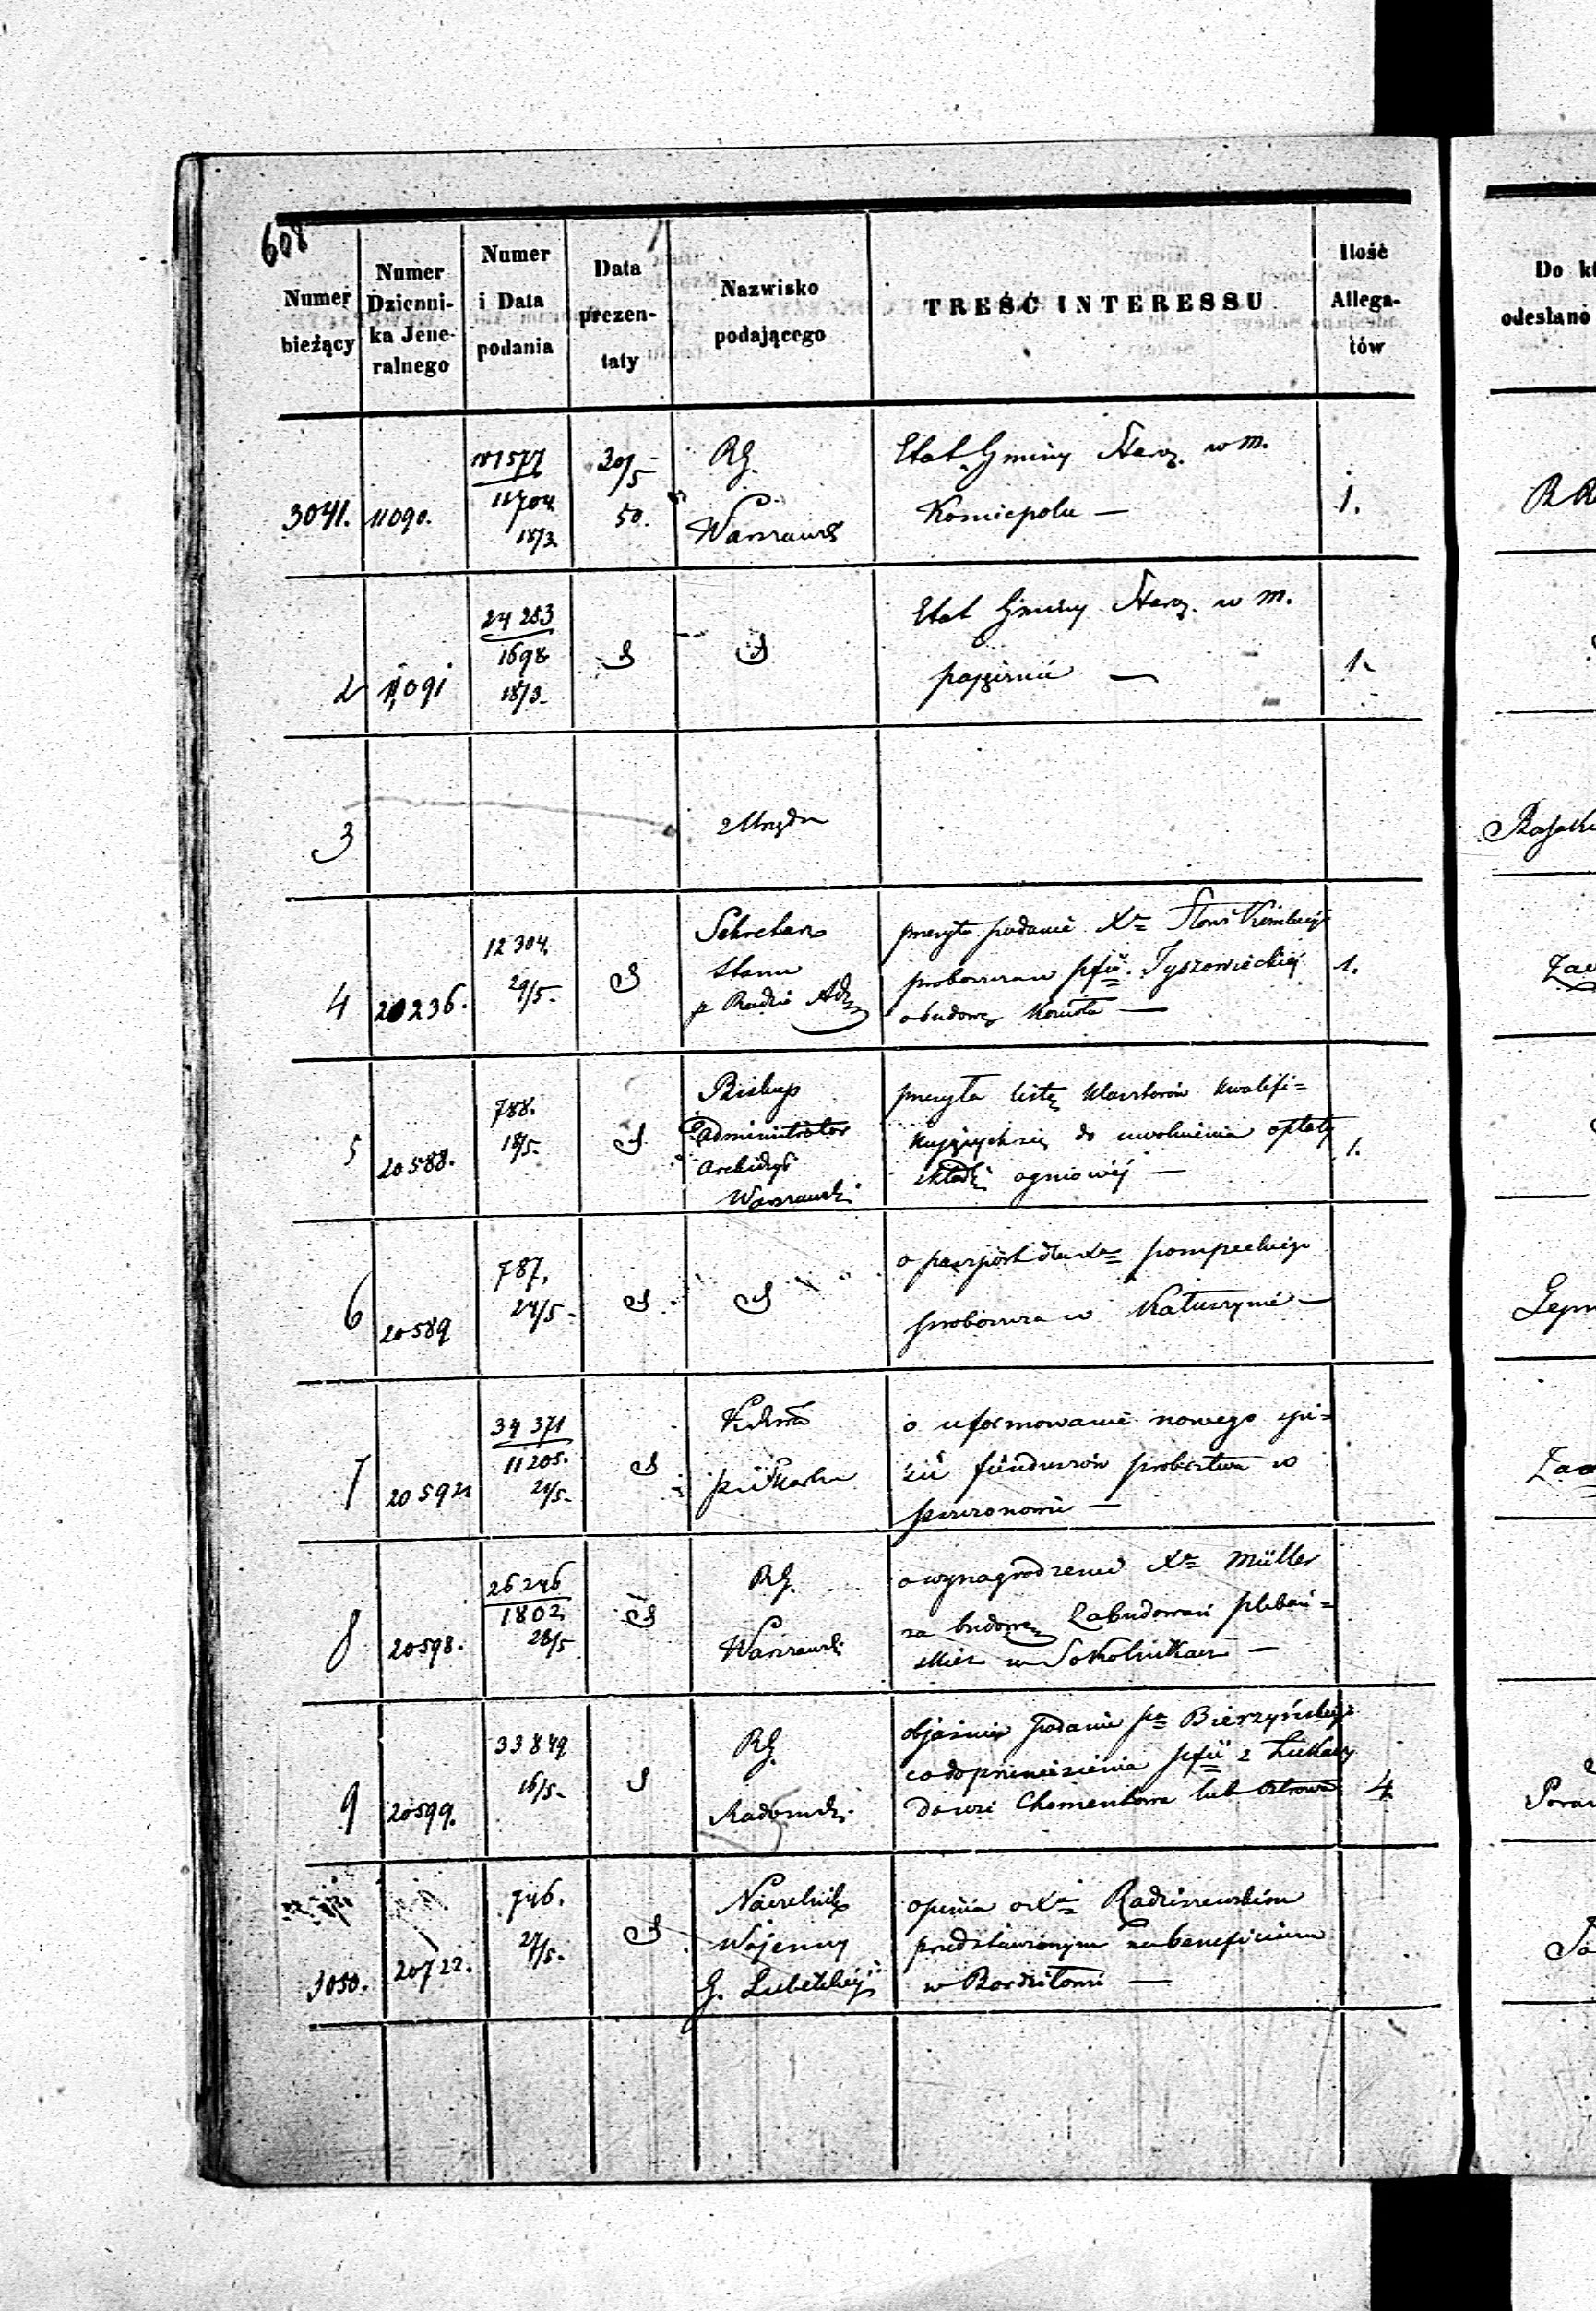 608
Numer bieżący
Numer Dzienni-
ka Jene-
ralnego
Numer
i Data
podania
Data
prezen-
taty
Nazwisko
podającego
TREŚĆ INTERESSU
Ilość
Allega-
tów
Do
odesłano
3041. 11090.
11704
18/3
30/5
50.
RG.
Warszaws
Etat Gminy Staroz. w m.
Koniecpolu —
1.
2 11091
24 283
1698
18/3.
Etat Gminy Staroz. w m.
1.
3
z Urzędu
4 20236.
12304.
29/5.
Sekretarz
Stanu
p Radzie Adm
przesyła podanie Xa
proboszcza pfii Tyszowieckiej
o budowę Kościoła —
1.
5 20588.
788.
18/5.
Biskup
Administrator
Archidyec
Warszawski
przesyła listę Klasztorów Kwalifi=
kujących się do uwolnienia opłaty
składki ogniowej —
1.
6 20589
787.
24/5.
o paszport dla Xa
proboszcza w Kałuszynie —
7 20592
34 371
11205.
21/5.
o uformowanie nowego spi=
su funduszów probostwa w
8 20598.
26246
1802
28/5
RG.
Warszawski
o wynagrodzenie Xa Müller
za budowę Zabudowań plebań=
skich w Sokolnikach —
9 20599.
33849
16/5.
RG.
Radomski
objaśnia podanie pa Bierzyńskiego
co do przeniesienia pfii z
do wsi Chomentowa lub
4.
3050. 20722.
746.
27/5.
Naczelnik
Wojenny
G. Lubelskiej
opinia o Xu Radziszewskim
przedstawionym na beneficium
w Bordziłowie —